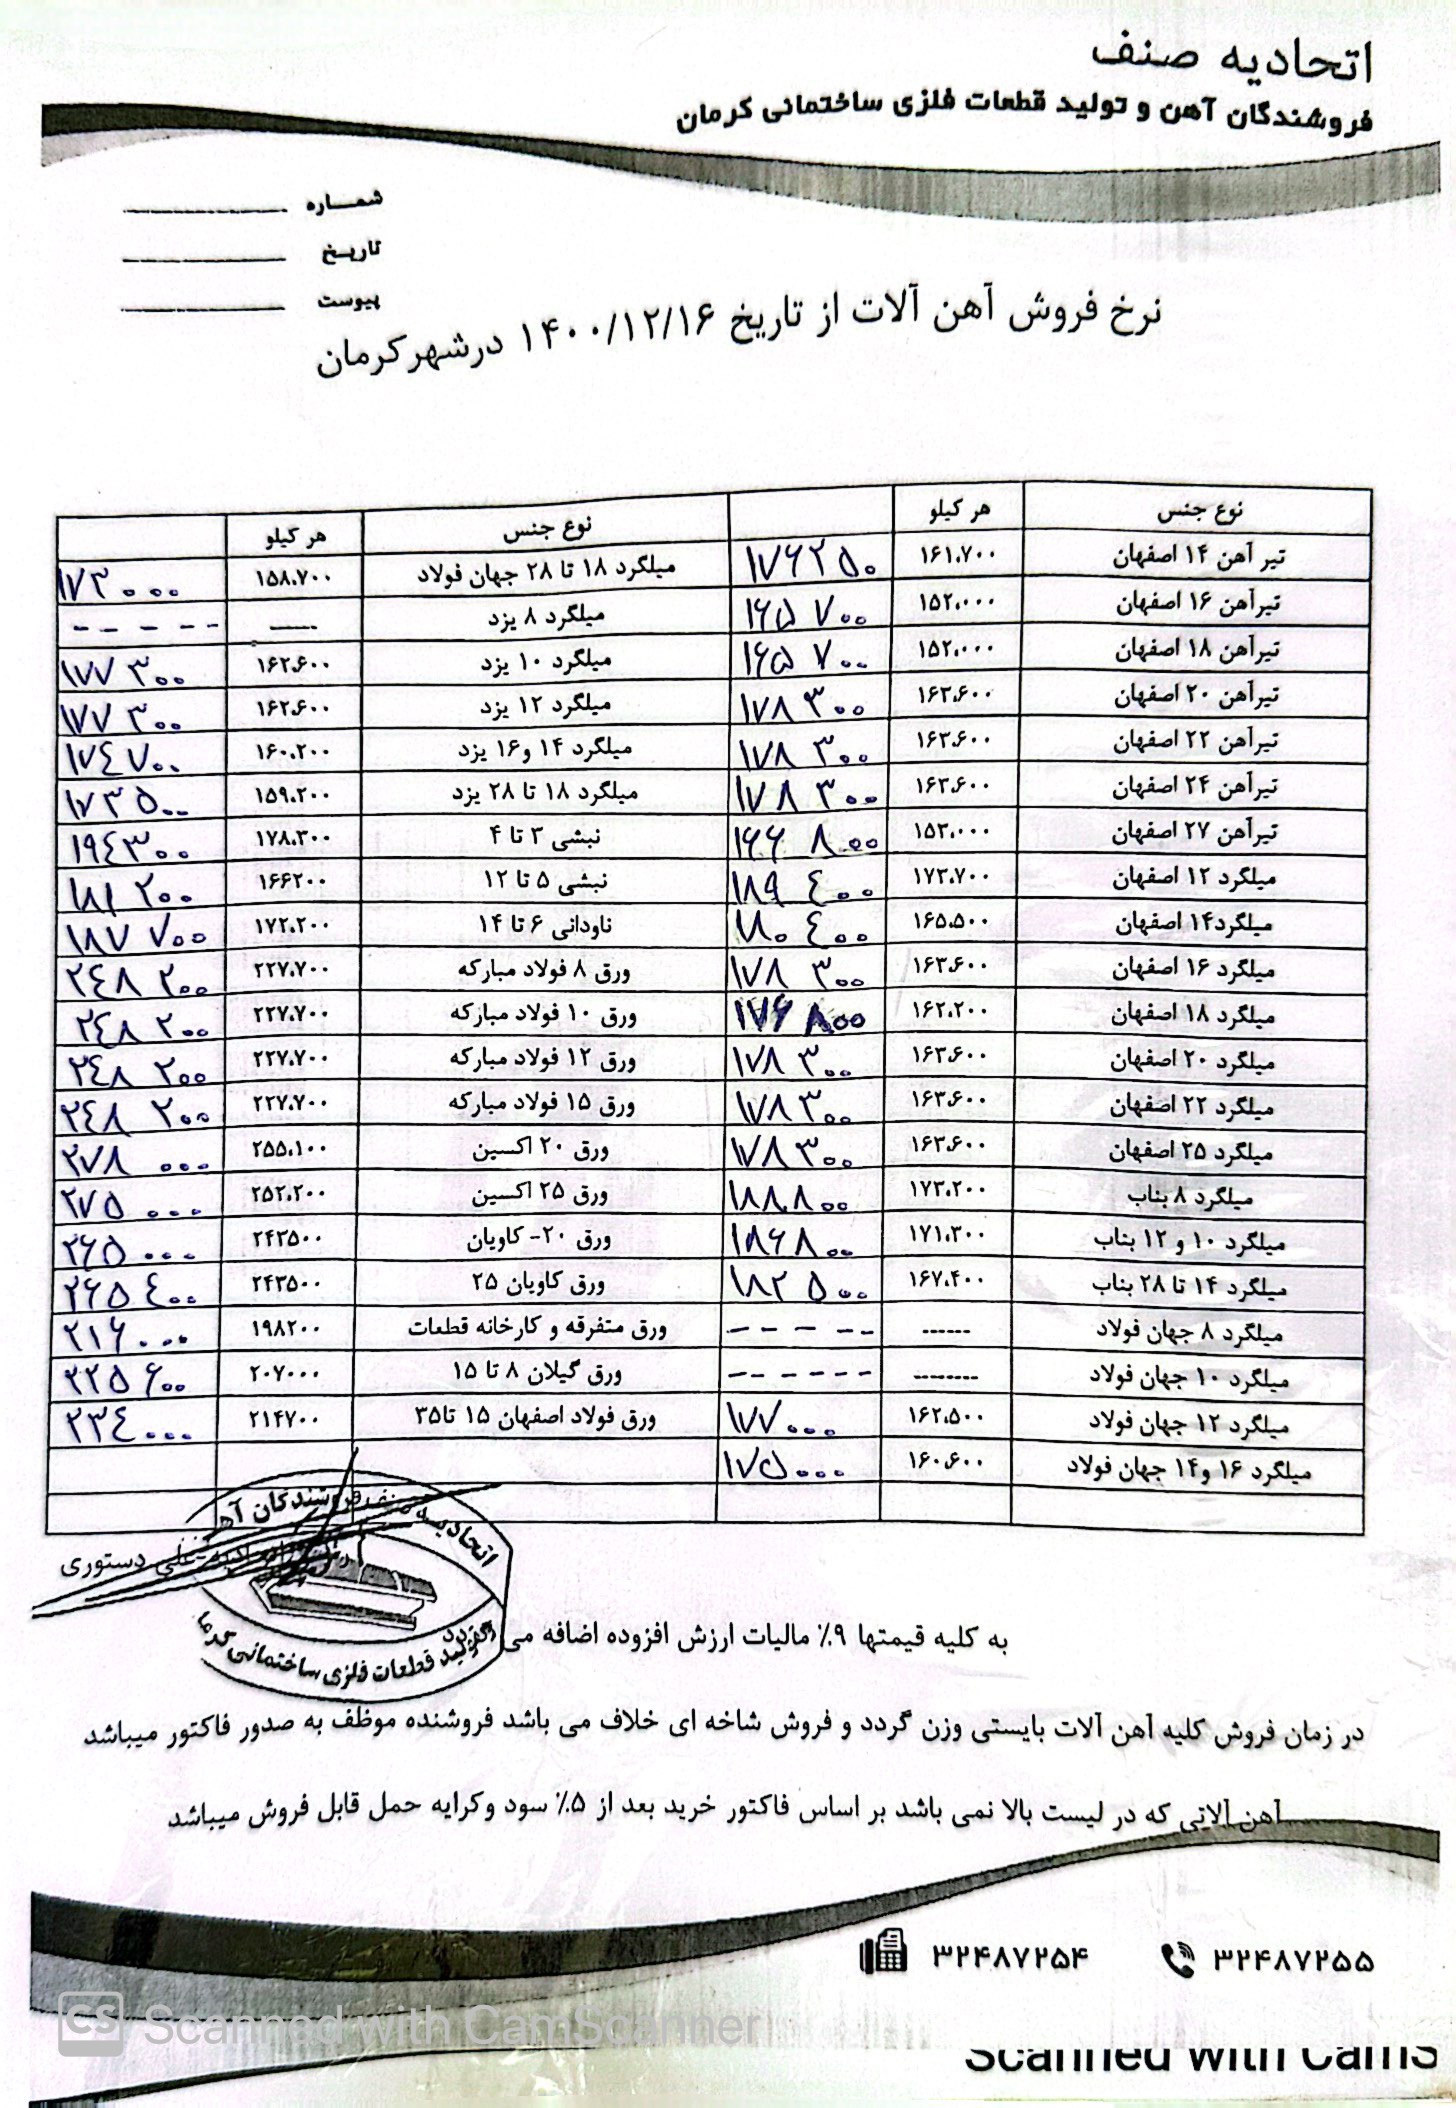 اتحادیه صنف
فروشندگان آهن و تولید قطعات فلزی ساختمانی کرمان
شماره
تاریخ
پیوست
نرخ فروش آهن آلات از تاریخ ۱۴۰۰/۱۲/۱۶ درشهرکرمان
نوع جنس هر کیلو نوع جنس هر کیلو
تیر آهن ۱۴ اصفهان ۱۶۱،۷۰۰ ۱۷۶۲۵۰ میلگرد ۱۸ تا ۲۸ جهان فولاد ۱۵۸،۷۰۰ ۱۷۳۰۰۰
تیرآهن ۱۶ اصفهان ۱۵۲،۰۰۰ ۱۶۵۷۰۰ میلگرد ۸ یزد ----- -----
تیرآهن ۱۸ اصفهان ۱۵۲،۰۰۰ ۱۶۵۷۰۰ میلگرد ۱۰ یزد ۱۶۲،۶۰۰ ۱۷۷۳۰۰
تیرآهن ۲۰ اصفهان ۱۶۳،۶۰۰ ۱۷۸۳۰۰ میلگرد ۱۲ یزد ۱۶۲،۶۰۰ ۱۷۷۳۰۰
تیرآهن ۲۲ اصفهان ۱۶۳،۶۰۰ ۱۷۸۳۰۰ میلگرد ۱۴ و۱۶ یزد ۱۶۰،۲۰۰ ۱۷٤۷۰۰
تیرآهن ۲۴ اصفهان ۱۶۳،۶۰۰ ۱۷۸۳۰۰ میلگرد ۱۸ تا ۲۸ یزد ۱۵۹،۲۰۰ ۱۷۳۵۰۰
تیرآهن ۲۷ اصفهان ۱۵۳،۰۰۰ ۱۶۶۸۰۰ نبشی ۳ تا ۴ ۱۷۸،۳۰۰ ۱۹٤۳۰۰
میلگرد ۱۲ اصفهان ۱۷۳،۷۰۰ ۱۸۹٤۰۰ نبشی ۵ تا ۱۲ ۱۶۶۲۰۰ ۱۸۱۲۰۰
میلگرد۱۴ اصفهان ۱۶۵،۵۰۰ ۱۸۰٤۰۰ ناودانی ۶ تا ۱۴ ۱۷۲،۲۰۰ ۱۸۷۷۰۰
میلگرد ۱۶ اصفهان ۱۶۳،۶۰۰ ۱۷۸۳۰۰ ورق ۸ فولاد مبارکه ۲۲۷،۷۰۰ ۲٤۸۲۰۰
میلگرد ۱۸ اصفهان ۱۶۲،۲۰۰ ۱۷۶۸۰۰ ورق ۱۰ فولاد مبارکه ۲۲۷،۷۰۰ ۲٤۸۲۰۰
میلگرد ۲۰ اصفهان ۱۶۳،۶۰۰ ۱۷۸۳۰۰ ورق ۱۲ فولاد مبارکه ۲۲۷،۷۰۰ ۲٤۸۲۰۰
میلگرد ۲۲ اصفهان ۱۶۳،۶۰۰ ۱۷۸۳۰۰ ورق ۱۵ فولاد مبارکه ۲۲۷،۷۰۰ ۲٤۸۲۰۰
میلگرد ۲۵ اصفهان ۱۶۳،۶۰۰ ۱۷۸۳۰۰ ورق ۲۰ اکسین ۲۵۵،۱۰۰ ۲۷۸۰۰۰
میلگرد ۸ بناب ۱۷۳،۲۰۰ ۱۸۸۸۰۰ ورق ۲۵ اکسین ۲۵۲،۲۰۰ ۲۷۵۰۰۰
میلگرد ۱۰ و ۱۲ بناب ۱۷۱،۳۰۰ ۱۸۶۸۰۰ ورق ۲۰- کاویان ۲۴۳۵۰۰ ۲۶۵۰۰۰
میلگرد ۱۴ تا ۲۸ بناب ۱۶۷،۴۰۰ ۱۸۲۵۰۰ ورق کاویان ۲۵ ۲۴۳۵۰۰ ۲۶۵٤۰۰
میلگرد ۸ جهان فولاد ------ ----- ورق متفرقه و کارخانه قطعات ۱۹۸۲۰۰ ۲۱۶۰۰۰
میلگرد ۱۰ جهان فولاد -------- ------ ورق گیلان ۸ تا ۱۵ ۲۰۷۰۰۰ ۲۲۵۶۰۰
میلگرد ۱۲ جهان فولاد ۱۶۲،۵۰۰ ۱۷۷۰۰۰ ورق فولاد اصفهان ۱۵ تا۳۵ ۲۱۴۷۰۰ ۲۳٤۰۰۰
میلگرد ۱۶ و۱۴ جهان فولاد ۱۶۰،۶۰۰ ۱۷۵۰۰۰
اتحادیه صنف فروشندگان آهن
علی دستوری
و تولید قطعات فلزی ساختمانی کرمان
به کلیه قیمتها ۹٪ مالیات ارزش افزوده اضافه می گردد
در زمان فروش کلیه آهن آلات بایستی وزن گردد و فروش شاخه ای خلاف می باشد فروشنده موظف به صدور فاکتور میباشد
آهن آلاتی که در لیست بالا نمی باشد بر اساس فاکتور خرید بعد از ۵٪ سود وکرایه حمل قابل فروش میباشد
۳۲۴۸۷۲۵۵ ۳۲۴۸۷۲۵۴
CS Scanned with CamScanner
Scanned with CamS